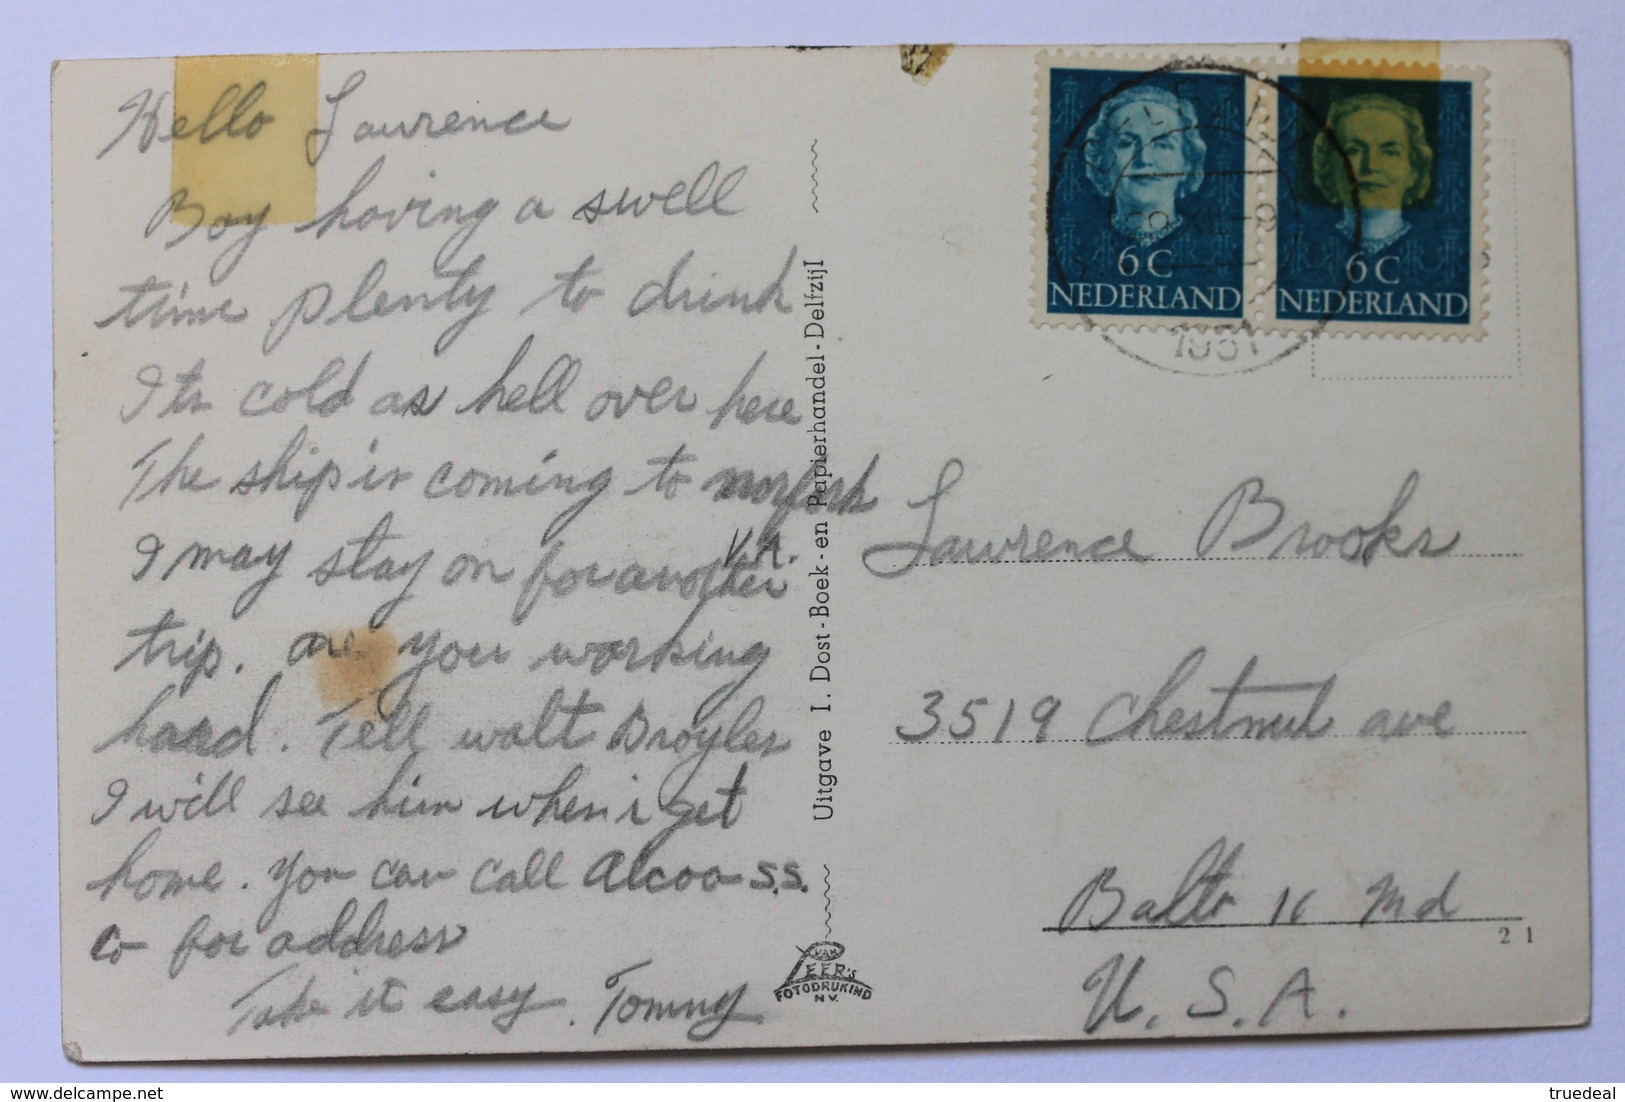 Hello Lawrence
Boy having a swell
time plenty to drink
Its cold as hell over here
The ship is coming to norfork
V.A.
I may stay on for another
trip. are you working
hard. Tell walt Broyles
I will see him when i get
home. you can call Alcoa S.S.
Co for address
Take it easy. Tommy
Uitgave I. Dost - Boek - en Papierhandel - Delfzijl
VAN
LEER'S
FOTODRUKIND
N.V.
6 C
NEDERLAND
6 C
NEDERLAND
1951
Lawrence Brooks
3519 Chestnut ave
Balto 11 Md
21
U.S.A.
delcampe.net
truedeal